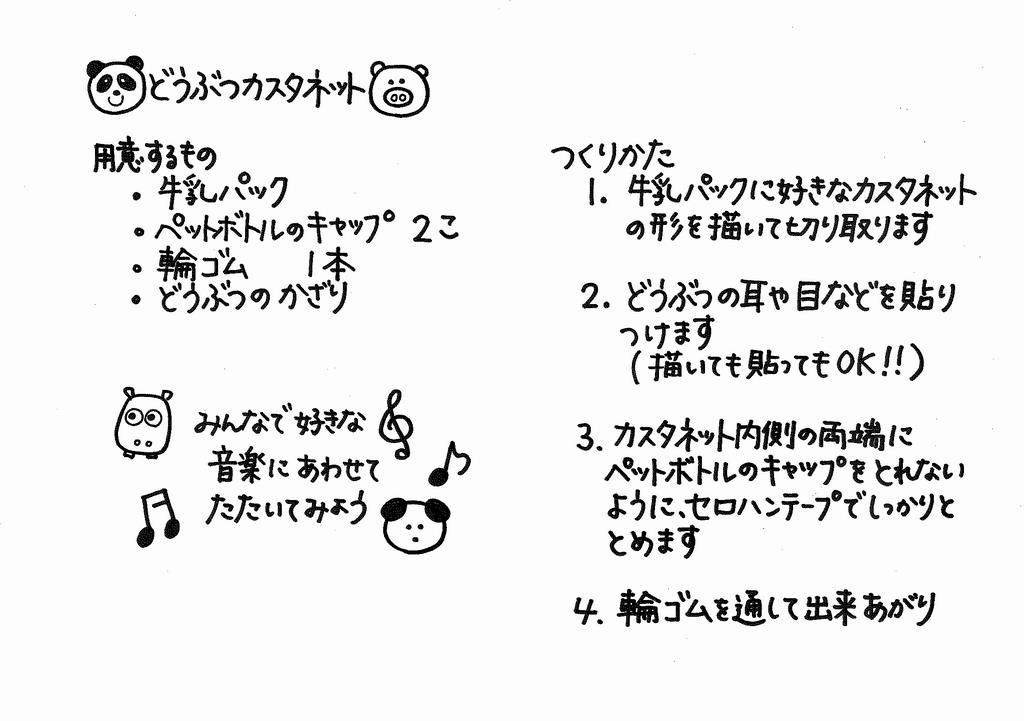 どうぶつカスタネット
用意するもの
・牛乳パック
・ペットボトルのキャップ 2こ
・輪ゴム 1本
・どうぶつの かざり
みんなで好きな
音楽に あわせて
たたいてみよう
つくりかた
1. 牛乳パックに好きなカスタネット
の形を描いて切り取ります
2. どうぶつの耳や目などを貼り
つけます
(描いても貼ってもOK!!)
3. カスタネット内側の両端に
ペットボトルのキャップをとれない
ように、セロハンテープでしっかりと
とめます
4. 輪ゴムを通して出来あがり